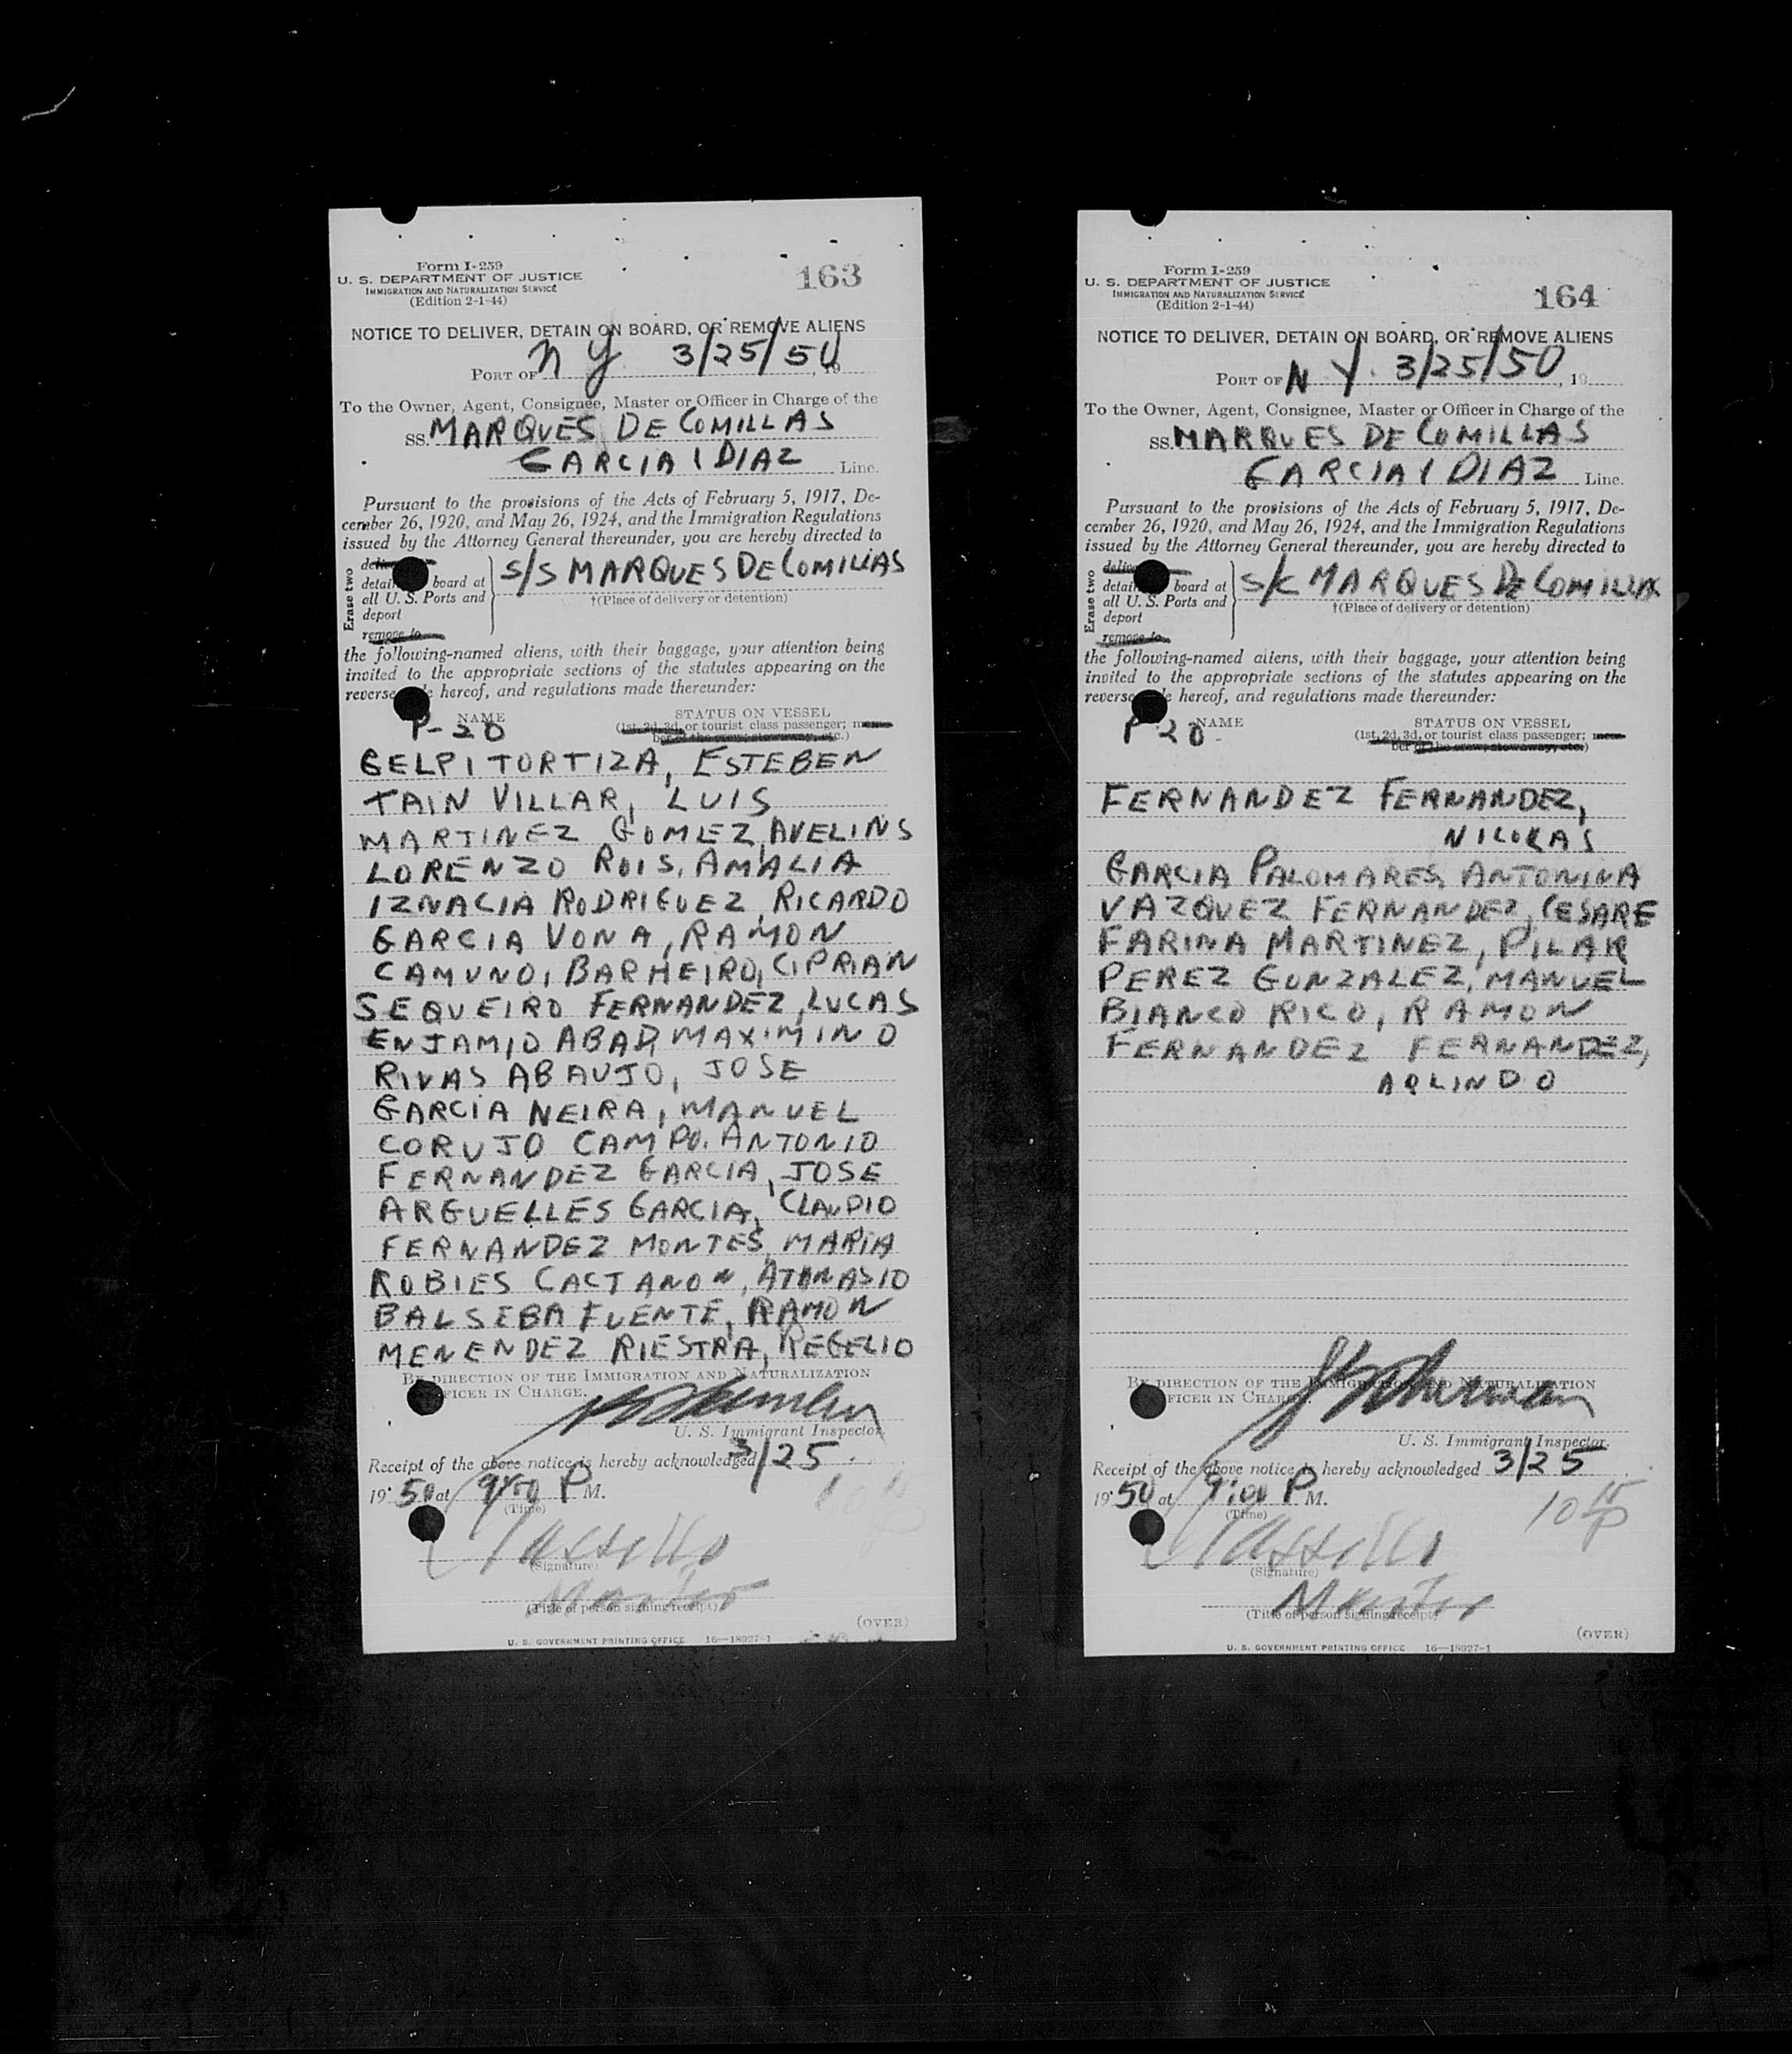 Form I-259
U. S. DEPARTMENT OF JUSTICE
IMMIGRATION AND NATURALIZATION SERVICE
(Edition 2-1-44)
163
NOTICE TO DELIVER, DETAIN ON BOARD, OR REMOVE ALIENS
PORT OF N Y 3/25/50, 19
To the Owner, Agent, Consignee, Master or Officer in Charge of the
SS. MARQUES DE COMILLAS
GARCIA & DIAZ Line.
Pursuant to the provisions of the Acts of February 5, 1917, De-
cember 26, 1920, and May 26, 1924, and the Immigration Regulations
issued by the Attorney General thereunder, you are hereby directed to
Erase two
detain board at
all U. S. Ports and
deport
remove to
S/S MARQUES DE COMILLAS
†(Place of delivery or detention)
the following-named aliens, with their baggage, your attention being
invited to the appropriate sections of the statutes appearing on the
reverse hereof, and regulations made thereunder:
NAME STATUS ON VESSEL
P-20 (1st, 2d, 3d, or tourist class passenger; mem-
ber of the crew; stowaway, etc.)
GELPI TORTIZA, ESTEBEN
TAIN VILLAR, LUIS
MARTINEZ GOMEZ, AVELINS
LORENZO ROIS, AMALIA
IZNACIA RODRIGUEZ, RICARDO
GARCIA VONA, RAMON
CAMUNO, BARHEIRO, CIPRIAN
SEQUEIRO FERNANDEZ, LUCAS
ENJAMIO ABAD, MAXIMINO
RIVAS ABAUJO, JOSE
GARCIA NEIRA, MANUEL
CORUJO CAMPO. ANTONIO
FERNANDEZ GARCIA, JOSE
ARGUELLES GARCIA, CLAUDIO
FERNANDEZ MONTES, MARIA
ROBIES CACTANON, ATANASIO
BALSEBA FUENTE, RAMON
MENENDEZ RIESTRA, REGELIO
BY DIRECTION OF THE IMMIGRATION AND NATURALIZATION
OFFICER IN CHARGE.
U. S. Immigrant Inspector.
Receipt of the above notice is hereby acknowledged 3/25,
19 50 at 9:00 P M.
(Time)
(Signature)
Master
(Title of person signing receipt)
(OVER)
U. S. GOVERNMENT PRINTING OFFICE 16—18927-1
Form I-259
U. S. DEPARTMENT OF JUSTICE
IMMIGRATION AND NATURALIZATION SERVICE
(Edition 2-1-44)
164
NOTICE TO DELIVER, DETAIN ON BOARD, OR REMOVE ALIENS
PORT OF N Y. 3/25/50, 19
To the Owner, Agent, Consignee, Master or Officer in Charge of the
SS. MARQUES DE COMILLAS
GARCIA & DIAZ Line.
Pursuant to the provisions of the Acts of February 5, 1917, De-
cember 26, 1920, and May 26, 1924, and the Immigration Regulations
issued by the Attorney General thereunder, you are hereby directed to
Erase two
deliver
detain board at
all U. S. Ports and
deport
remove to
MARQUES DE COMILLA
†(Place of delivery or detention)
the following-named aliens, with their baggage, your attention being
invited to the appropriate sections of the statutes appearing on the
reverse hereof, and regulations made thereunder:
NAME STATUS ON VESSEL
P 20 (1st, 2d, 3d, or tourist class passenger; mem-
ber of the crew; stowaway, etc.)
FERNANDEZ FERNANDEZ,
NICOLAS
GARCIA PALOMARES, ANTONINA
VAZQUEZ FERNANDEZ, CESARE
FARINA MARTINEZ, PILAR
PEREZ GONZALEZ, MANUEL
BIANCO RICO, RAMON
FERNANDEZ FERNANDEZ,
ARLINDO
BY DIRECTION OF THE IMMIGRATION AND NATURALIZATION
OFFICER IN CHARGE.
U. S. Immigrant Inspector.
Receipt of the above notice is hereby acknowledged 3/25
19 50 at 9:00 P M.
(Time)
10 15 P
(Signature)
Master
(Title of person signing receipt)
(OVER)
U. S. GOVERNMENT PRINTING OFFICE 16—18927-1